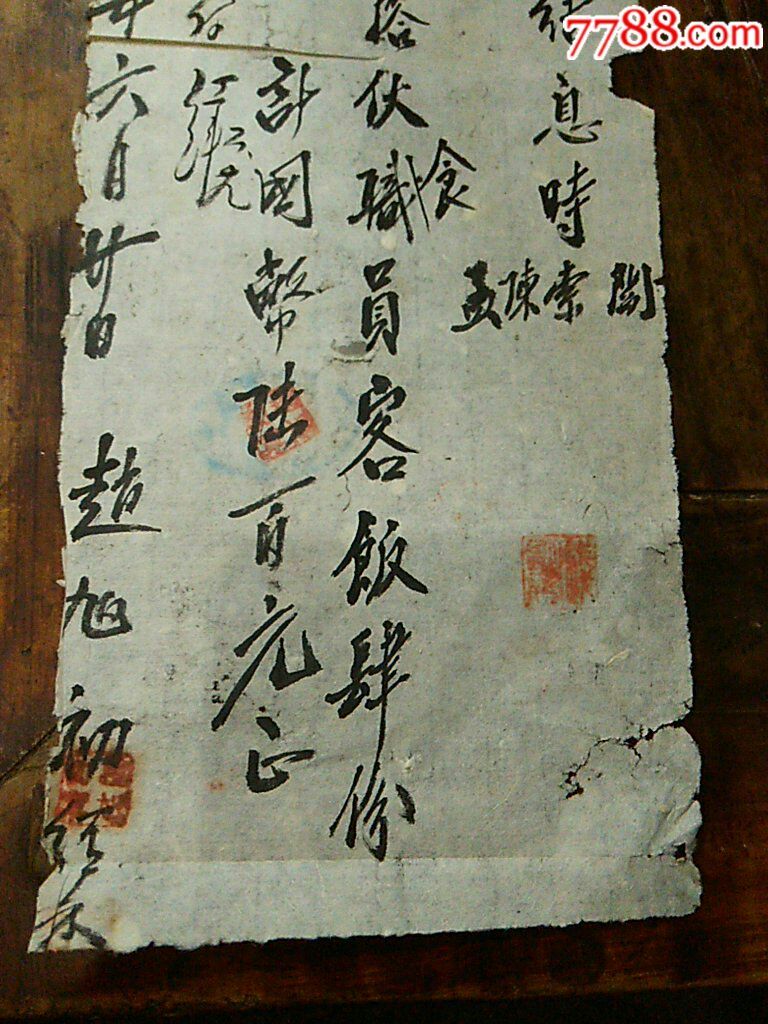 7788.com
結息時
閻
索
陳
孟
搭伙食職員客飯肆份
計國幣陸百元正
年六月廿日 趙旭初經